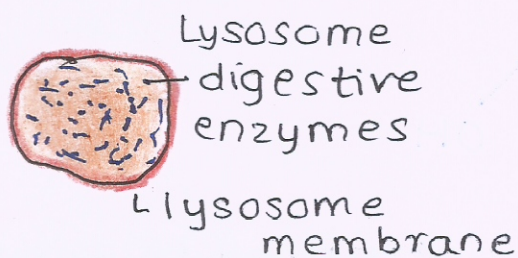 Lysosome
digestive
enzymes
lysosome
membrane